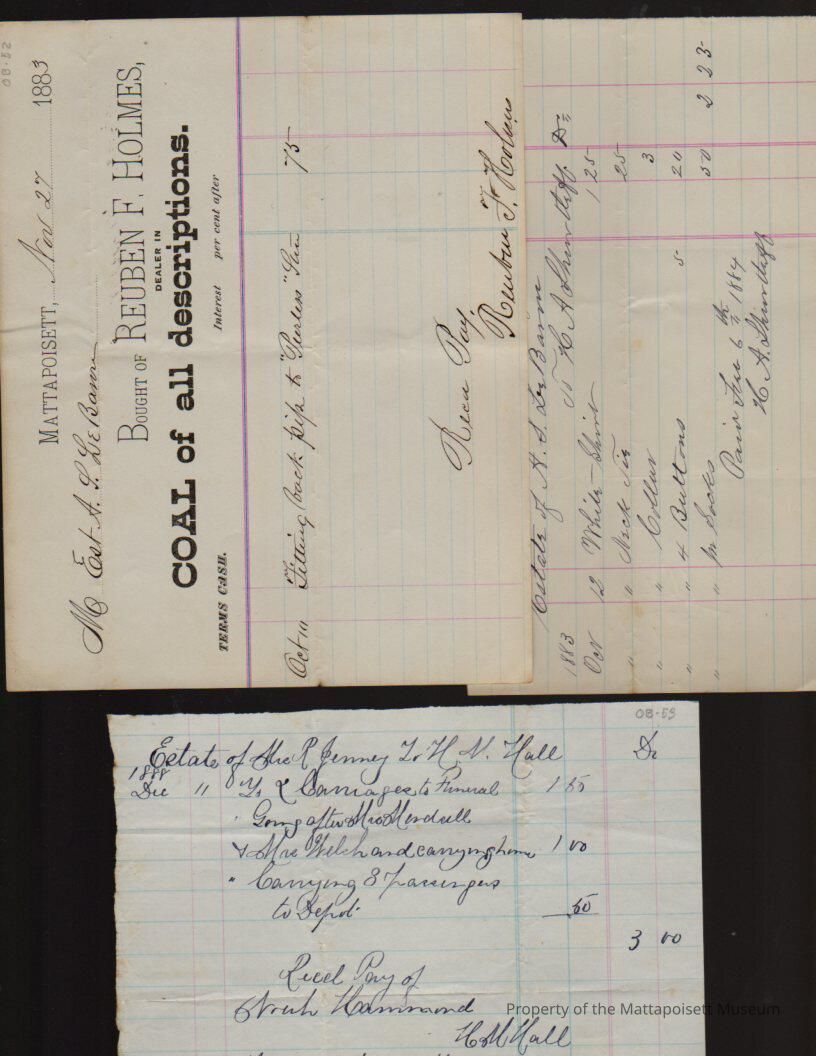 OB-52
MATTAPOISETT, Nov 27 1883
M Est A. S. LeBaron
BOUGHT OF REUBEN F. HOLMES,
DEALER IN
COAL of all descriptions.
TERMS CASH. Interest per cent after
Oct 11 Fitting back pipe to "Peerless" 75
Recd Pay,
Reuben F. Holmes
Estate of A. S. LeBaron
1883 To H A Shurtleff. Dr
Oct 12 White Shirt 1 25
" " Neck Tie 25
" " Collar 3
" " 4 Buttons 5 20
" " pr Socks 50
2 23
Paid 6th 1884
H. A. Shurtleff
OB-53
Estate of Mrs R Jenney To H. N. Hall Dr
1888
Dec " To 2 Carriages to Funeral 1 50
Going after Mrs Mendell
& Mrs Welch and carrying home 1 00
" Carrying 3 passengers
to Depot 50
3 00
Recd Pay of
Noah Hammond
H. N. Hall
Property of the Mattapoisett Museum